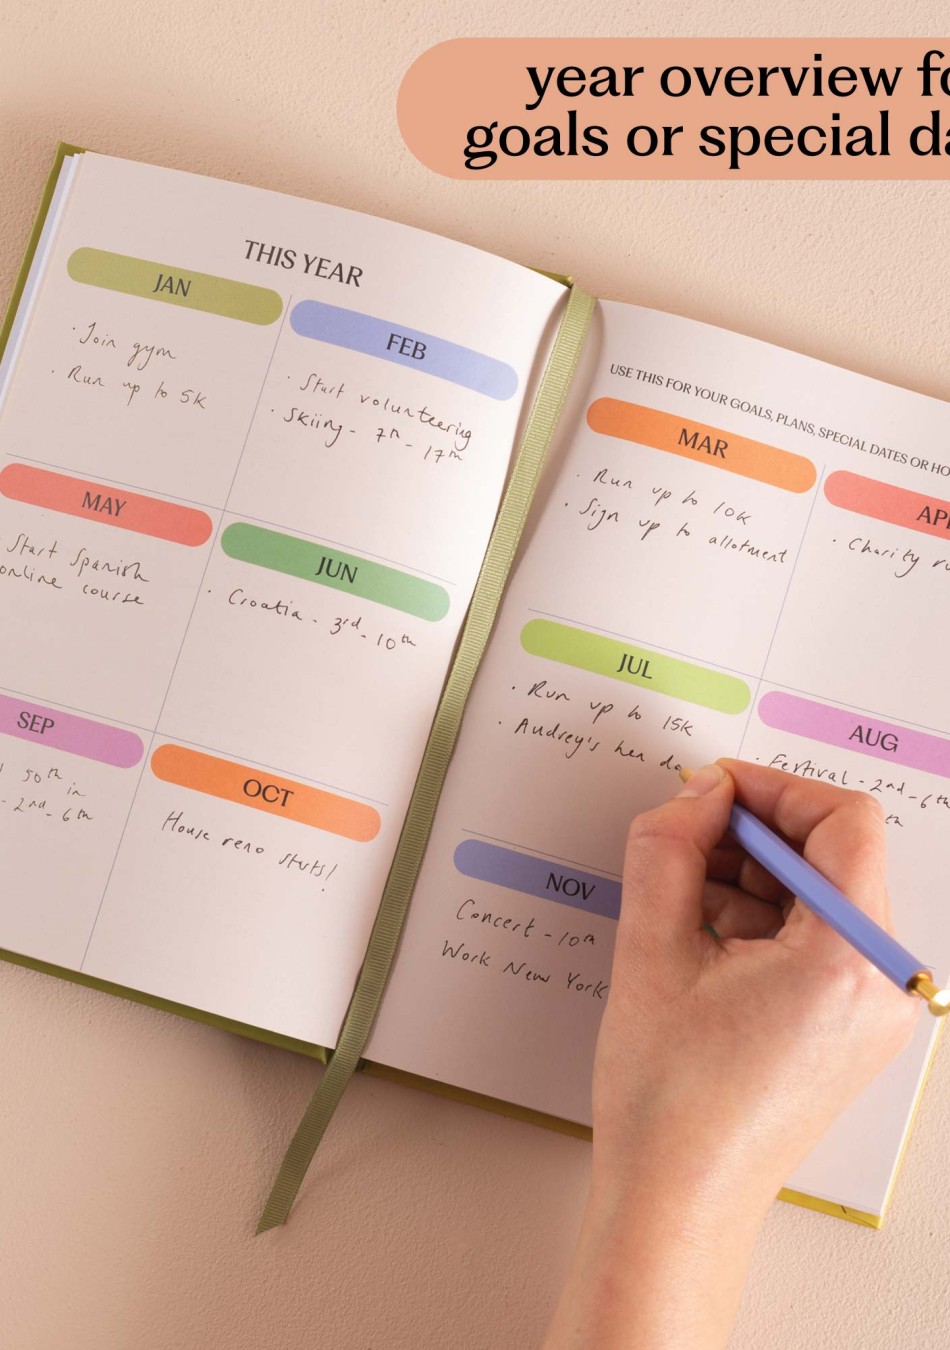 year overview fo
goals or special da
THIS YEAR
JAN
· Join gym
· Run up to 5K
FEB
· Start volunteering
· Skiing - 7th - 17th
MAY
Start Spanish
online course
JUN
· Croatia - 3rd - 10th
SEP
50th in
- 2nd - 6th
OCT
House reno starts!
USE THIS FOR YOUR GOALS, PLANS, SPECIAL DATES OR HO
MAR
· Run up to 10K
· Sign up to allotment
AP
· Charity ru
JUL
· Run up to 15K
· Audrey's hen do
AUG
· Festival - 2nd - 6th
th
NOV
Concert - 10th
Work New York